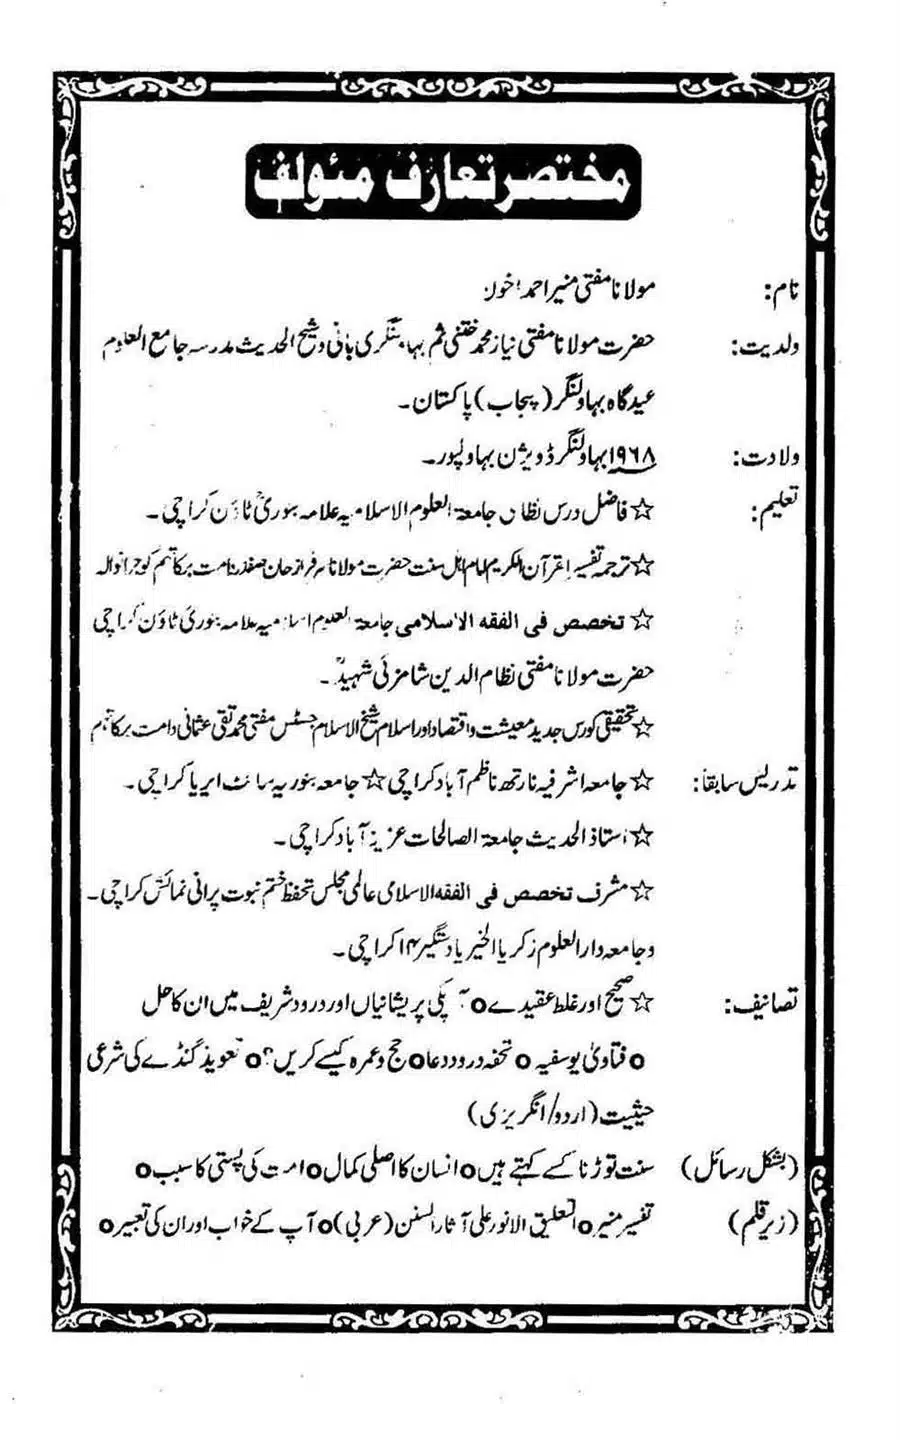 مختصر تعارف مئولف
نام: مولانا مفتی منیر احمد اخون
ولدیت: حضرت مولانا مفتی نیاز محمد ختنی ثم بہاولنگری بانی و شیخ الحدیث مدرسہ جامع العلوم
عیدگاہ بہاولنگر (پنجاب) پاکستان۔
ولادت: ۱۹۶۸ بہاولنگر ڈویژن بہاولپور۔
تعلیم: ☆ فاضل درس نظامی جامعۃ العلوم الاسلامیہ علامہ بنوریؒ ٹاؤن کراچی۔
☆ ترجمہ تفسیر القرآن الکریم امام اہل سنت حضرت مولانا سرفراز خان صفدر دامت برکاتہم گوجرانوالہ
☆ تخصص فی الفقہ الاسلامی جامعۃ العلوم الاسلامیہ علامہ بنوریؒ ٹاؤن کراچی
حضرت مولانا مفتی نظام الدین شامزئی شہیدؒ۔
☆ تحقیقی کورس جدید معیشت و اقتصاد اور اسلام شیخ الاسلام جسٹس مفتی محمد تقی عثمانی دامت برکاتہم
تدریس سابقاً: ☆ جامعہ اشرفیہ نارتھ ناظم آباد کراچی ☆ جامعہ بنوریہ سائٹ ایریا کراچی۔
☆ استاذ الحدیث جامعۃ الصالحات عزیز آباد کراچی۔
☆ مشرف تخصص فی الفقہ الاسلامی عالمی مجلس تحفظ ختم نبوت پرانی نمائش کراچی۔
و جامعہ دارالعلوم زکریا الخیریا دستگیر ۱۴ کراچی۔
تصانیف: ☆ صحیح اور غلط عقیدے o آپکی پریشانیاں اور درود شریف میں ان کا حل
o فتاویٰ یوسفیہ o تحفہ درود دعا o حج و عمرہ کیسے کریں؟ o تعویذ گنڈے کی شرعی
حیثیت (اردو/انگریزی)
(بشکل رسائل) سنت توڑنا کسے کہتے ہیں o انسان کا اصلی کمال o امت کی پستی کا سبب o
(زیر قلم) تفسیر منیر o التعلیق الانور علی آثار السنن (عربی) o آپ کے خواب اور ان کی تعبیر o